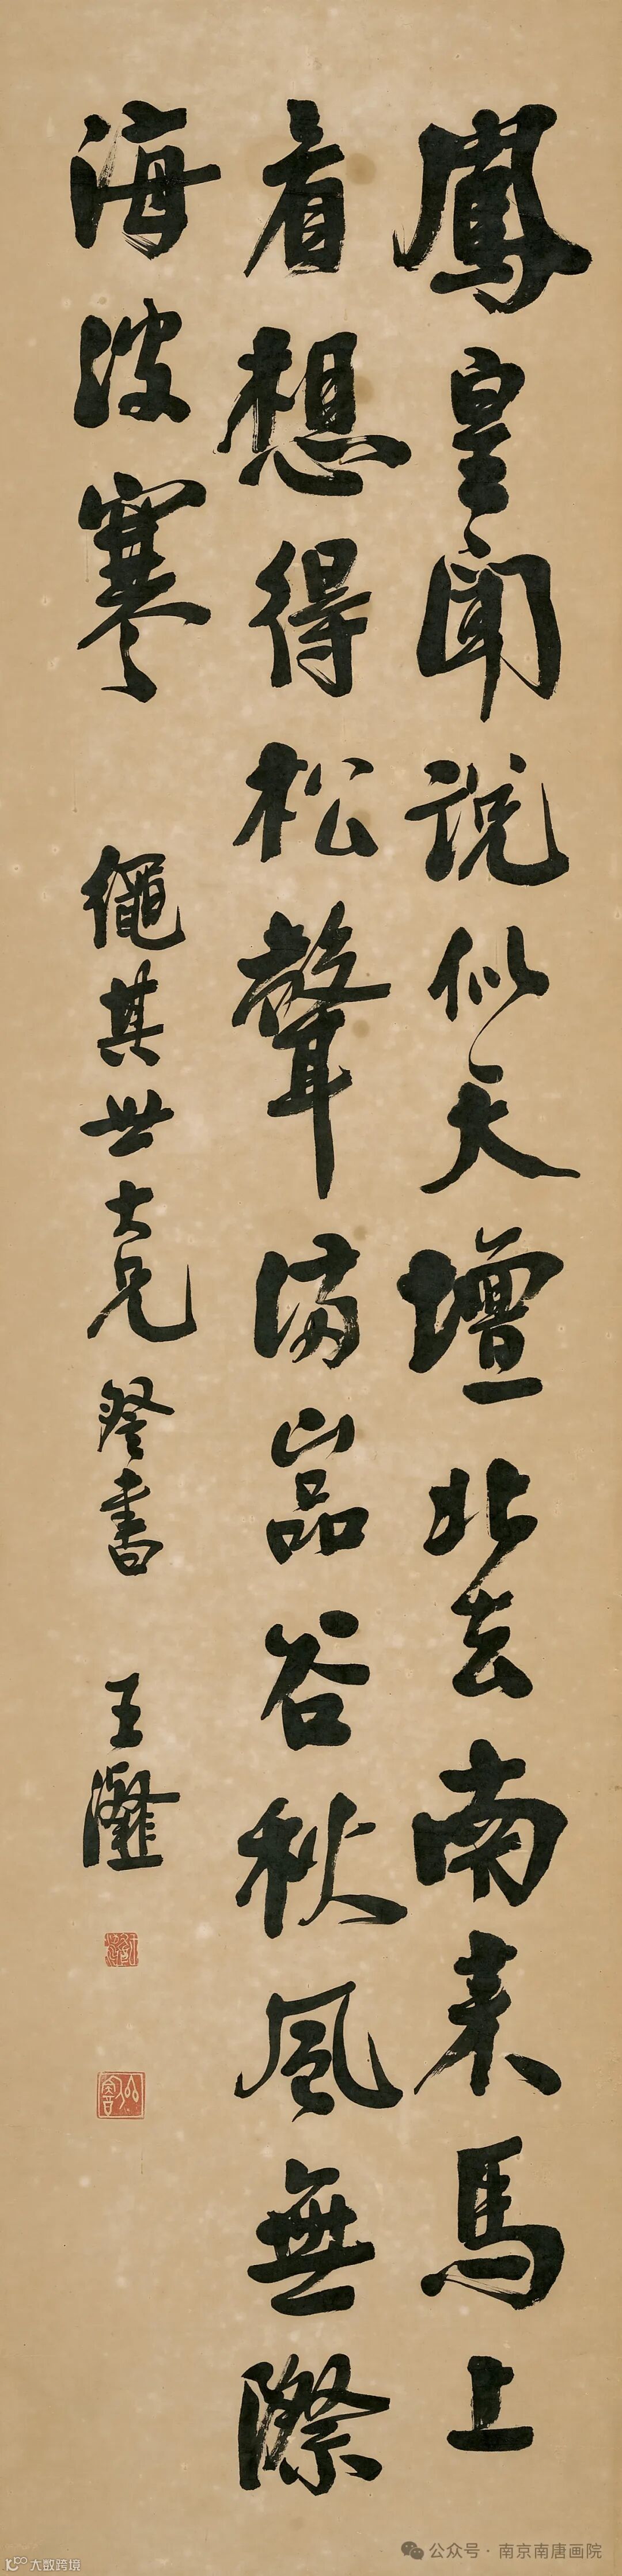 鳳皇聞說似天壇北去南来馬上
看想得松聲滿嵓谷秋風無際
海波寒
繩其世大兄 登書
王瀣
公众号·南京南唐画院
大数跨境